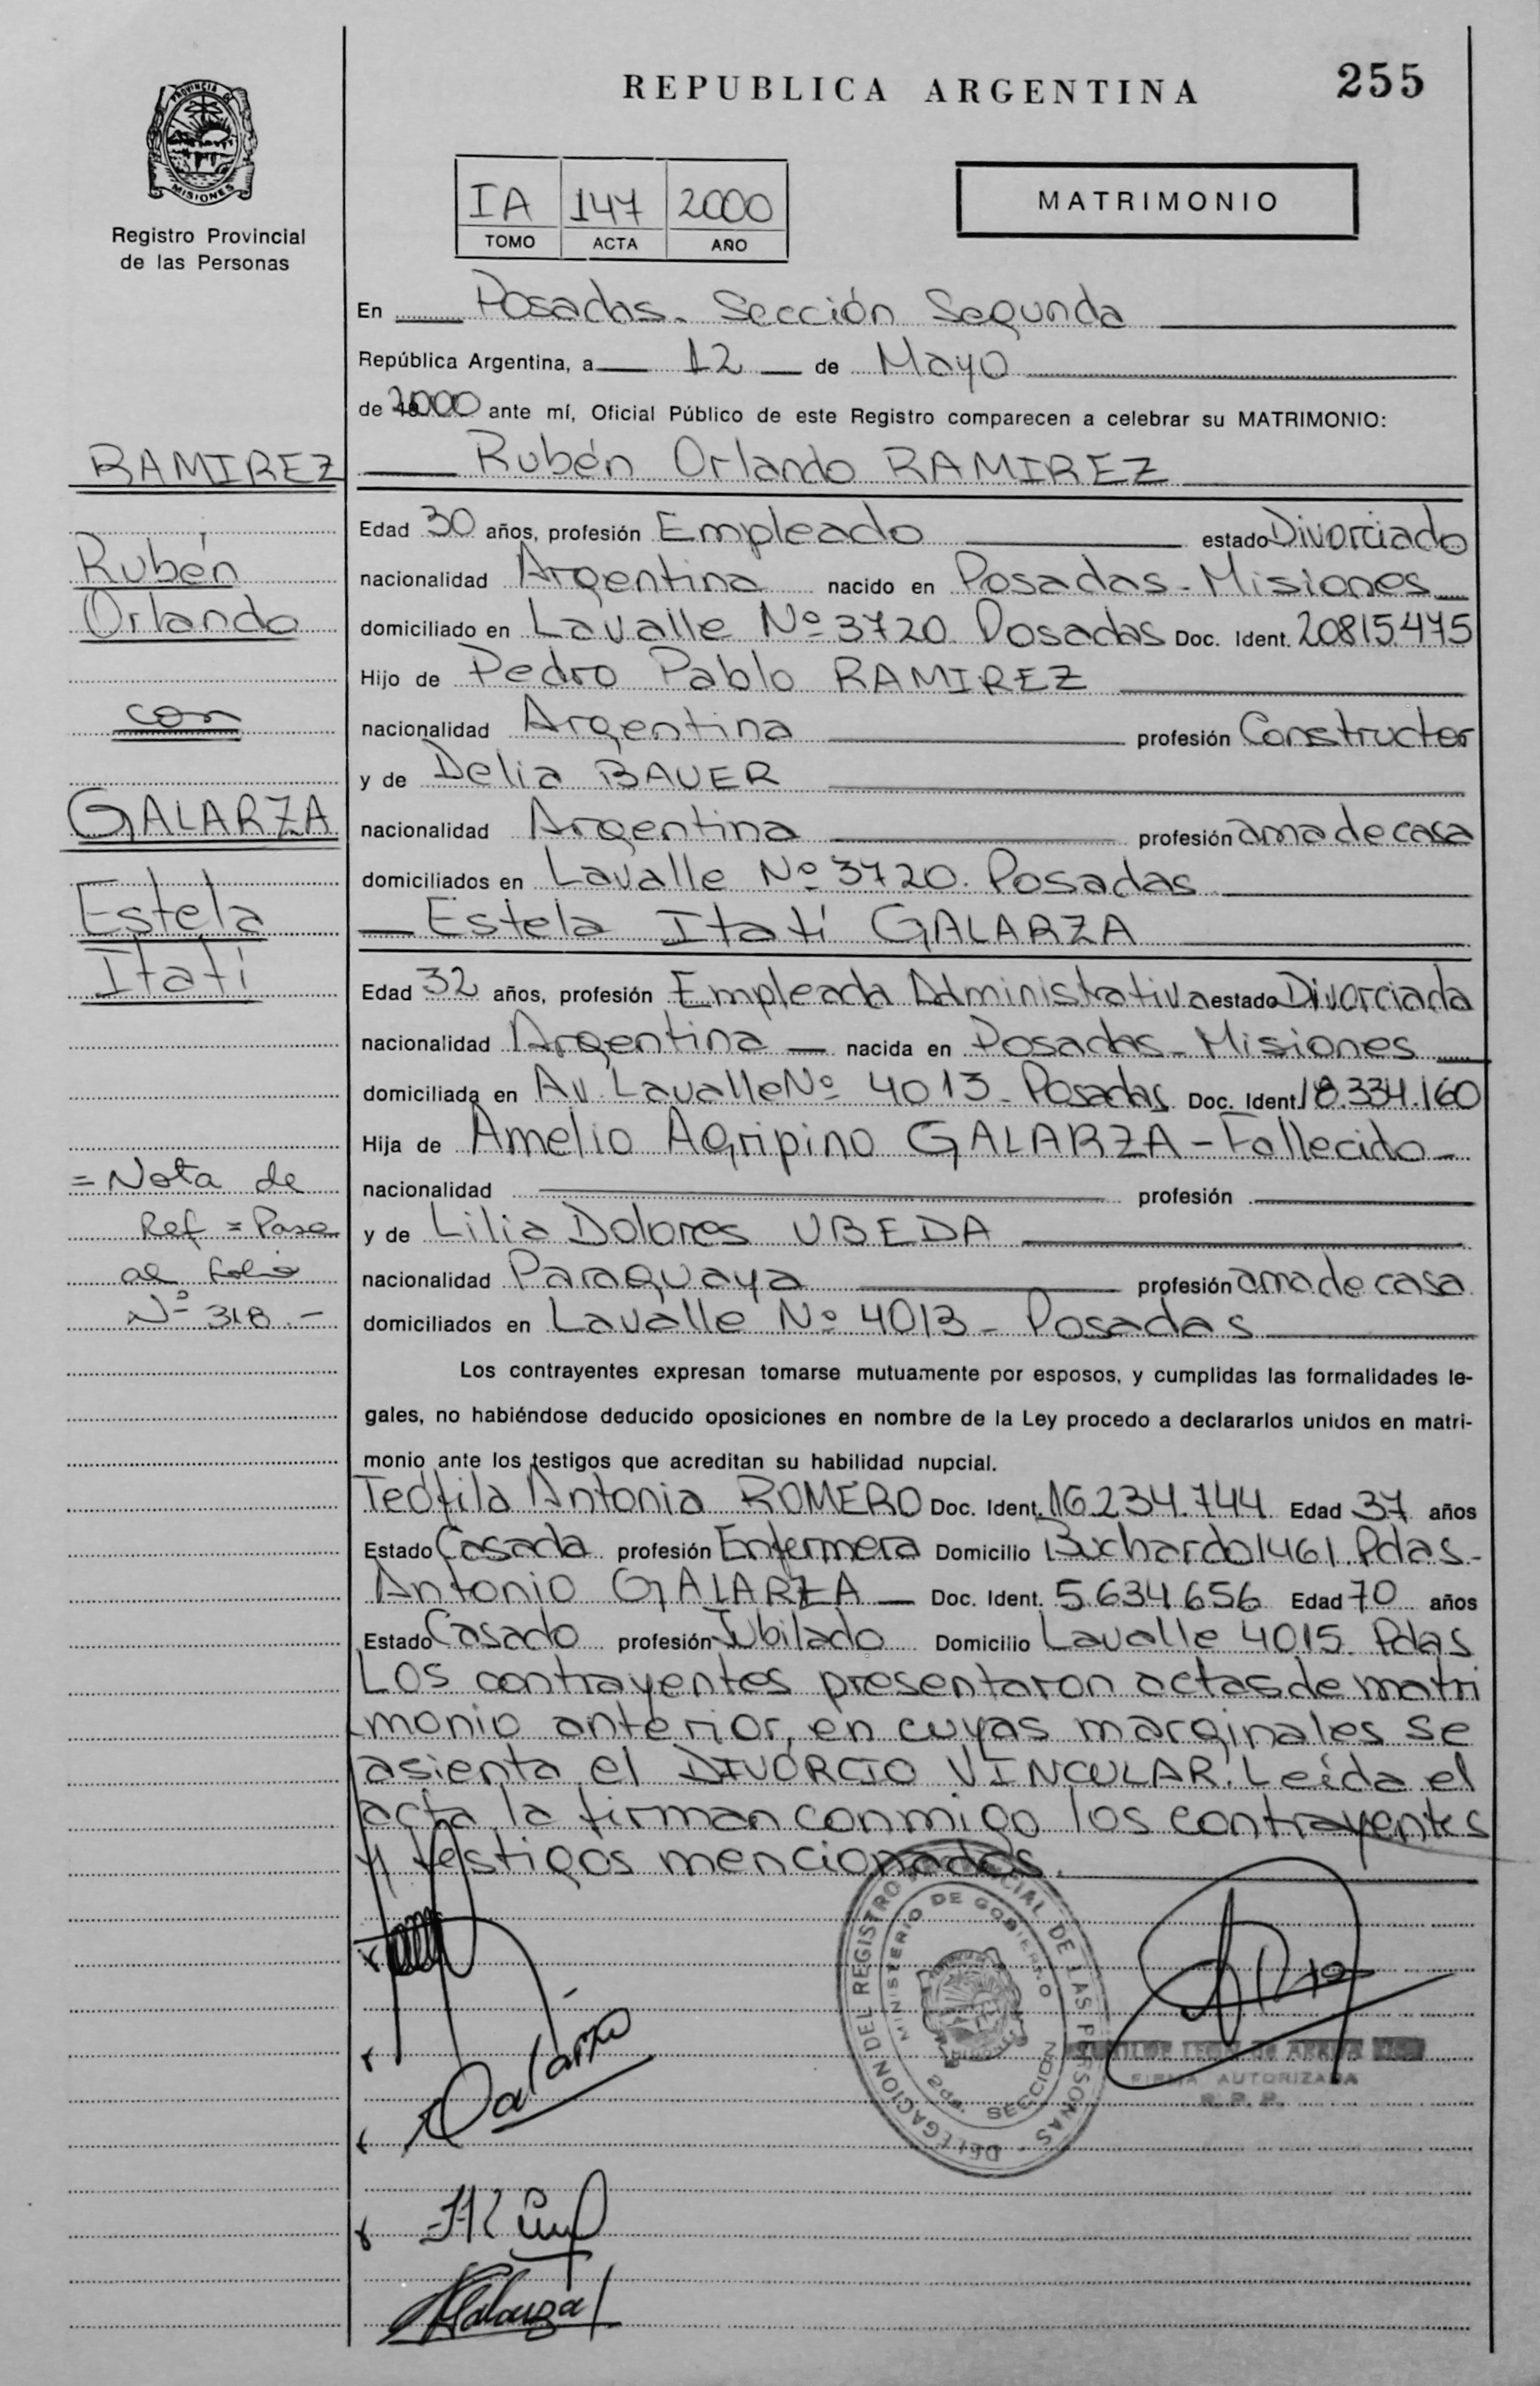 REPUBLICA ARGENTINA 255
PROVINCIA DE
MISIONES
Registro Provincial
de las Personas
IA 147 2000
TOMO ACTA AÑO
MATRIMONIO
En Posadas. Sección Segunda
República Argentina, a 12 de Mayo
de 2000 ante mí, Oficial Público de este Registro comparecen a celebrar su MATRIMONIO:
Rubén Orlando RAMIREZ
Edad 30 años, profesión Empleado estado Divorciado
nacionalidad Argentina nacido en Posadas - Misiones
domiciliado en Lavalle Nº 3720. Posadas Doc. Ident. 20815.475
Hijo de Pedro Pablo RAMIREZ
nacionalidad Argentina profesión Constructor
y de Delia BAUER
nacionalidad Argentina profesión ama de casa
domiciliados en Lavalle Nº 3720. Posadas
Estela Itatí GALARZA
Edad 32 años, profesión Empleada Administrativa estado Divorciada
nacionalidad Argentina nacida en Posadas - Misiones
domiciliada en Av. Lavalle Nº 4013 - Posadas Doc. Ident. 18.334.160
Hija de Amelio Agripino GALARZA - Fallecido -
nacionalidad profesión
y de Lilia Dolores UBEDA
nacionalidad Paraguaya profesión ama de casa
domiciliados en Lavalle Nº 4013 - Posadas
Los contrayentes expresan tomarse mutuamente por esposos, y cumplidas las formalidades le-
gales, no habiéndose deducido oposiciones en nombre de la Ley procedo a declararlos unidos en matri-
monio ante los testigos que acreditan su habilidad nupcial.
Teófila Antonia ROMERO Doc. Ident. 16.234.744 Edad 37 años
Estado Casada profesión Enfermera Domicilio Buchardo 1461 Pdas -
Antonio GALARZA Doc. Ident. 5.634.656 Edad 70 años
Estado Casado profesión Jubilado Domicilio Lavalle 4015. Pdas
Los contrayentes presentaron actas de matri
monio anterior, en cuyas marginales se
asienta el DIVORCIO VINCULAR. Leída el
acta la firman conmigo los contrayentes
y testigos mencionados.
RAMIREZ
Rubén
Orlando
con
GALARZA
Estela
Itatí
= Nota de
Ref = Pase
al folio
Nº 318. -
DELEGACION DEL REGISTRO PROVINCIAL DE LAS PERSONAS
MINISTERIO DE GOBIERNO
SECCION 2da.
FIRMA AUTORIZADA
R. P. P.
Galarza
Galarza